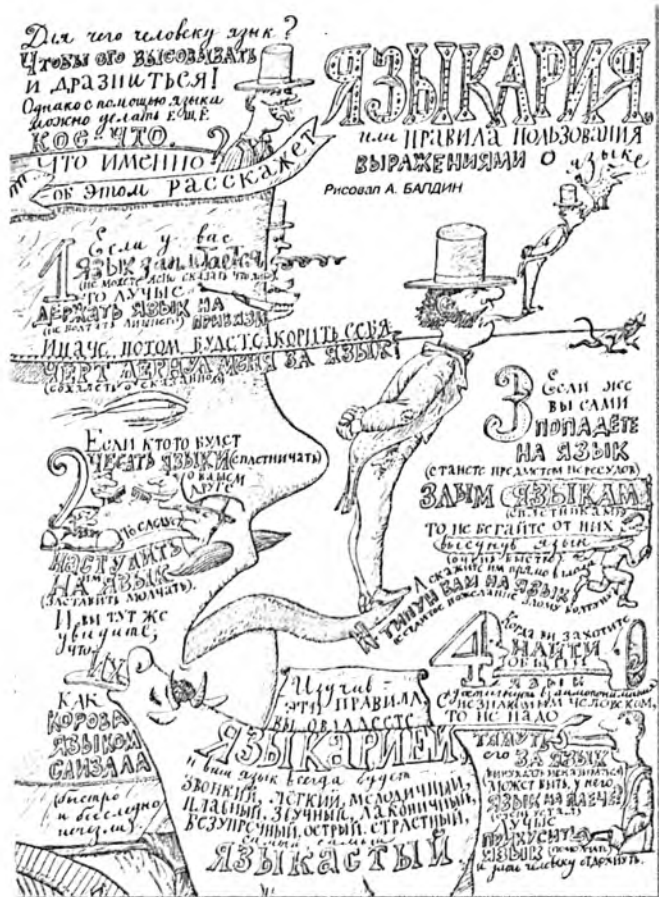 Для чего человеку язык?
Чтобы его высовывать
и дразниться!
Однако с помощью языка
можно делать ЕЩЁ
КОЕ-ЧТО.
ЧТО ИМЕННО?
– ОБ ЭТОМ РАССКАЖЕТ
ЯЗЫКАРИЯ,
или ПРАВИЛА ПОЛЬЗОВАНИЯ
ВЫРАЖЕНИЯМИ О
языке
Рисовал А. БАЛДИН
1 Если у вас
ЯЗЫК ЗАПЛЕТАЕТСЯ
(не можете ясно сказать что-либо)
ТО ЛУЧШЕ
ДЕРЖАТЬ ЯЗЫК НА
ПРИВЯЗИ
(НЕ БОЛТАТЬ ЛИШНЕГО)
ИНАЧЕ ПОТОМ БУДЕТЕ КОРИТЬ СЕБЯ
ЧЕРТ ДЕРНУЛ МЕНЯ ЗА ЯЗЫК!
(СОЖАЛЕТЬ О СКАЗАННОМ)
2 ЕСЛИ КТО ТО БУДЕТ
ЧЕСАТЬ ЯЗЫКИ (СПЛЕТНИЧАТЬ)
О ВАШЕМ
ДРУГЕ
ТО СЛЕДУЕТ
НАСТУПИТЬ
ИМ
НА ЯЗЫК
(ЗАСТАВИТЬ МОЛЧАТЬ).
И ВЫ ТУТ ЖЕ
увидите,
что
ИХ
КАК
КОРОВА
ЯЗЫКОМ
СЛИЗАЛА
(быстро
и бесследно
исчезли).
3 Если же
ВЫ САМИ
ПОПАДЁТЕ
НА ЯЗЫК
(СТАНЕТЕ ПРЕДМЕТОМ ПЕРЕСУДОВ)
ЗЛЫМ ЯЗЫКАМ
(СПЛЕТНИКАМ)
ТО НЕ БЕГАЙТЕ ОТ НИХ
высунув язык
(ОЧЕНЬ БЫСТРО)
А СКАЖИТЕ ИМ ПРЯМО В ЛИЦО
ТИПУН ВАМ НА ЯЗЫК
4 КОГДА ВЫ ЗАХОТИТЕ
НАЙТИ
ОБЩИЙ
ЯЗЫК
(достигнуть взаимопонимания)
С НЕЗНАКОМЫМ ЧЕЛОВЕКОМ,
ТО НЕ НАДО
ТЯНУТЬ
его ЗА ЯЗЫК
МОЖЕТ БЫТЬ, У НЕГО
ЯЗЫК НА ПЛЕЧЕ
ЛУЧШЕ
ПРИКУСИТЬ
ЯЗЫК
и дать человеку отдохнуть.
Изучив
ЭТИ ПРАВИЛА,
ВЫ ОВЛАДЕЕТЕ
ЯЗЫКАРИЕЙ,
и ваш язык всегда будет –
ЗВОНКИЙ, ЛЁГКИЙ, МЕЛОДИЧНЫЙ,
ПЛАВНЫЙ, ЗВУЧНЫЙ, ЛАКОНИЧНЫЙ,
БЕЗУПРЕЧНЫЙ, ОСТРЫЙ, СТРАСТНЫЙ,
самый самый
ЯЗЫКАСТЫЙ.